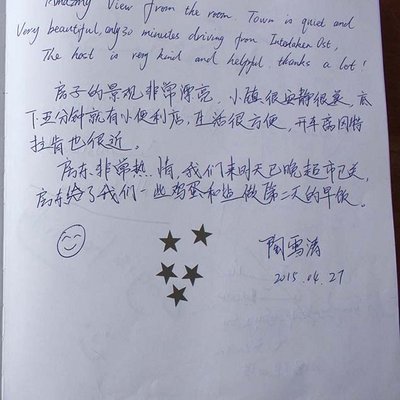 Amazing View from the room Town is quiet and
Very beautiful, only 30 minutes driving from Interlaken Ost,
The host is very kind and helpful thanks a lot!
房子的景观非常漂亮，小镇很安静很美，底
下五分钟就有小便利店，生活很方便，开车离因特
拉肯也很近。
房东非常热情，我们来时天已晚超市已关，
房东给了我们一些鸡蛋和 做第二天的早饭。
陶雪涛
2015.04.27